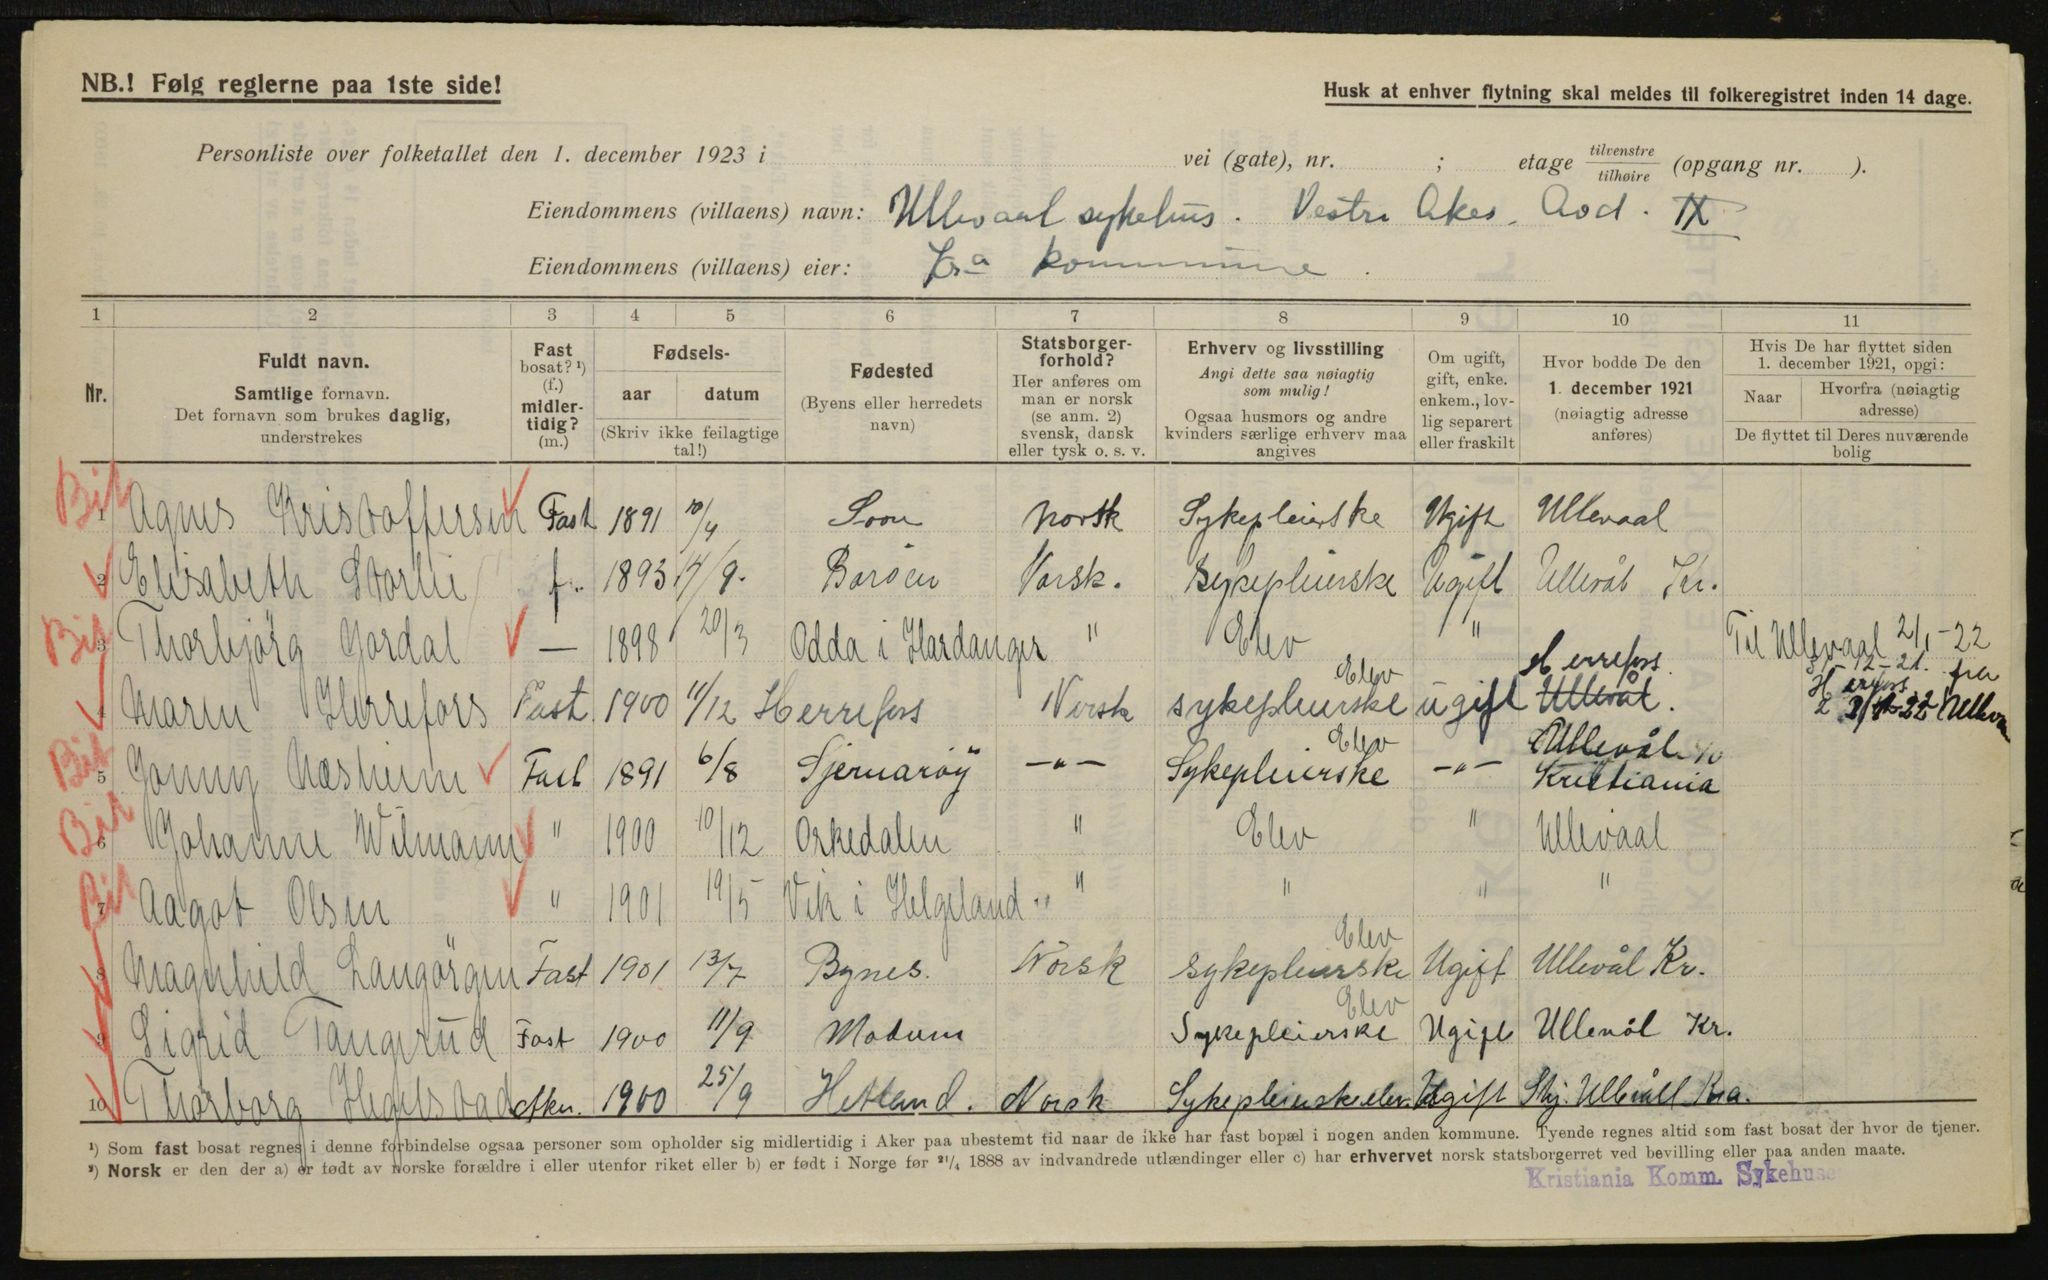 NB.! Følg reglerne paa 1ste side!
Husk at enhver flytning skal meldes til folkeregistret inden 14 dage.
Personliste over folketallet den 1. december 1923 i vei (gate), nr. ; etage tilvenstre/tilhøire (opgang nr. ).
Eiendommens (villaens) navn: Ullevaal sykehus. Vestre Aker. IX
Eiendommens (villaens) eier: Kra kommune.
1 2 3 4 5 6 7 8 9 10 11
Nr.
Fuldt navn.
Samtlige fornavn.
Det fornavn som brukes daglig,
understrekes
Fast
bosat? ¹)
(f.)
midler-
tidig?
(m.)
Fødsels-
aar datum
(Skriv ikke feilagtige
tal!)
Fødested
(Byens eller herredets
navn)
Statsborger-
forhold?
Her anføres om
man er norsk
(se anm. 2)
svensk, dansk
eller tysk o. s. v.
Erhverv og livsstilling
Angi dette saa nøiagtig
som mulig!
Ogsaa husmors og andre
kvinders særlige erhverv maa
angives
Om ugift,
gift, enke.
enkem., lov-
lig separert
eller fraskilt
Hvor bodde De den
1. december 1921
(nøiagtig adresse
anføres)
Hvis De har flyttet siden
1. december 1921, opgi:
Naar Hvorfra (nøiagtig
adresse)
De flyttet til Deres nuværende
bolig
1 Agnes Kristoffersen Fast 1891 10/4 Soon Norsk Sykepleierske Ugift Ullevaal
2 Elisabeth Storlie f. 1893 17/9. Borøen Norsk. Sykepleierske Ugift Ullevål Kr.
3 Thorbjörg Jordal — 1898 20/3 Odda i Hardanger " Elev " Til Ullevaal 2/1-22
4 Maren Herrefors Fast 1900 11/12 Herrefoss Norsk Elev sykepleierske ugift Herrefoss. Ullevål. fra
5 Jonny Næsheim Fast 1891 6/8 Sjernarøy —"— Elev Sykepleierske —"— Ullevål Kristiania
6 Johanne Wilmann " 1900 10/12 Orkedalen " Elev " Ullevaal
7 Aagot Olsen " 1901 19/5 Vik i Helgeland " " " "
8 Magnhild Langörgen Fast 1901 13/7 Bynes. Norsk Elev sykepleierske Ugift Ullevål Kr.
9 Sigrid Tangerud Fast 1900 11/9 Modum Elev Sykepleierske Ugift Ullevål Kr.
10 Thorborg 1900 25/9 Hetland. Norsk Sykepleierskeelev. Ugift Ullevåll Kra.
¹) Som fast bosat regnes i denne forbindelse ogsaa personer som opholder sig midlertidig i Aker paa ubestemt tid naar de ikke har fast bopæl i nogen anden kommune. Tyende regnes altid som fast bosat der hvor de tjener.
²) Norsk er den der a) er født av norske forældre i eller utenfor riket eller b) er født i Norge før 21/4 1888 av indvandrede utlændinger eller c) har erhvervet norsk statsborgerret ved bevilling eller paa anden maate.
Kristiania Komm. Sykehuse